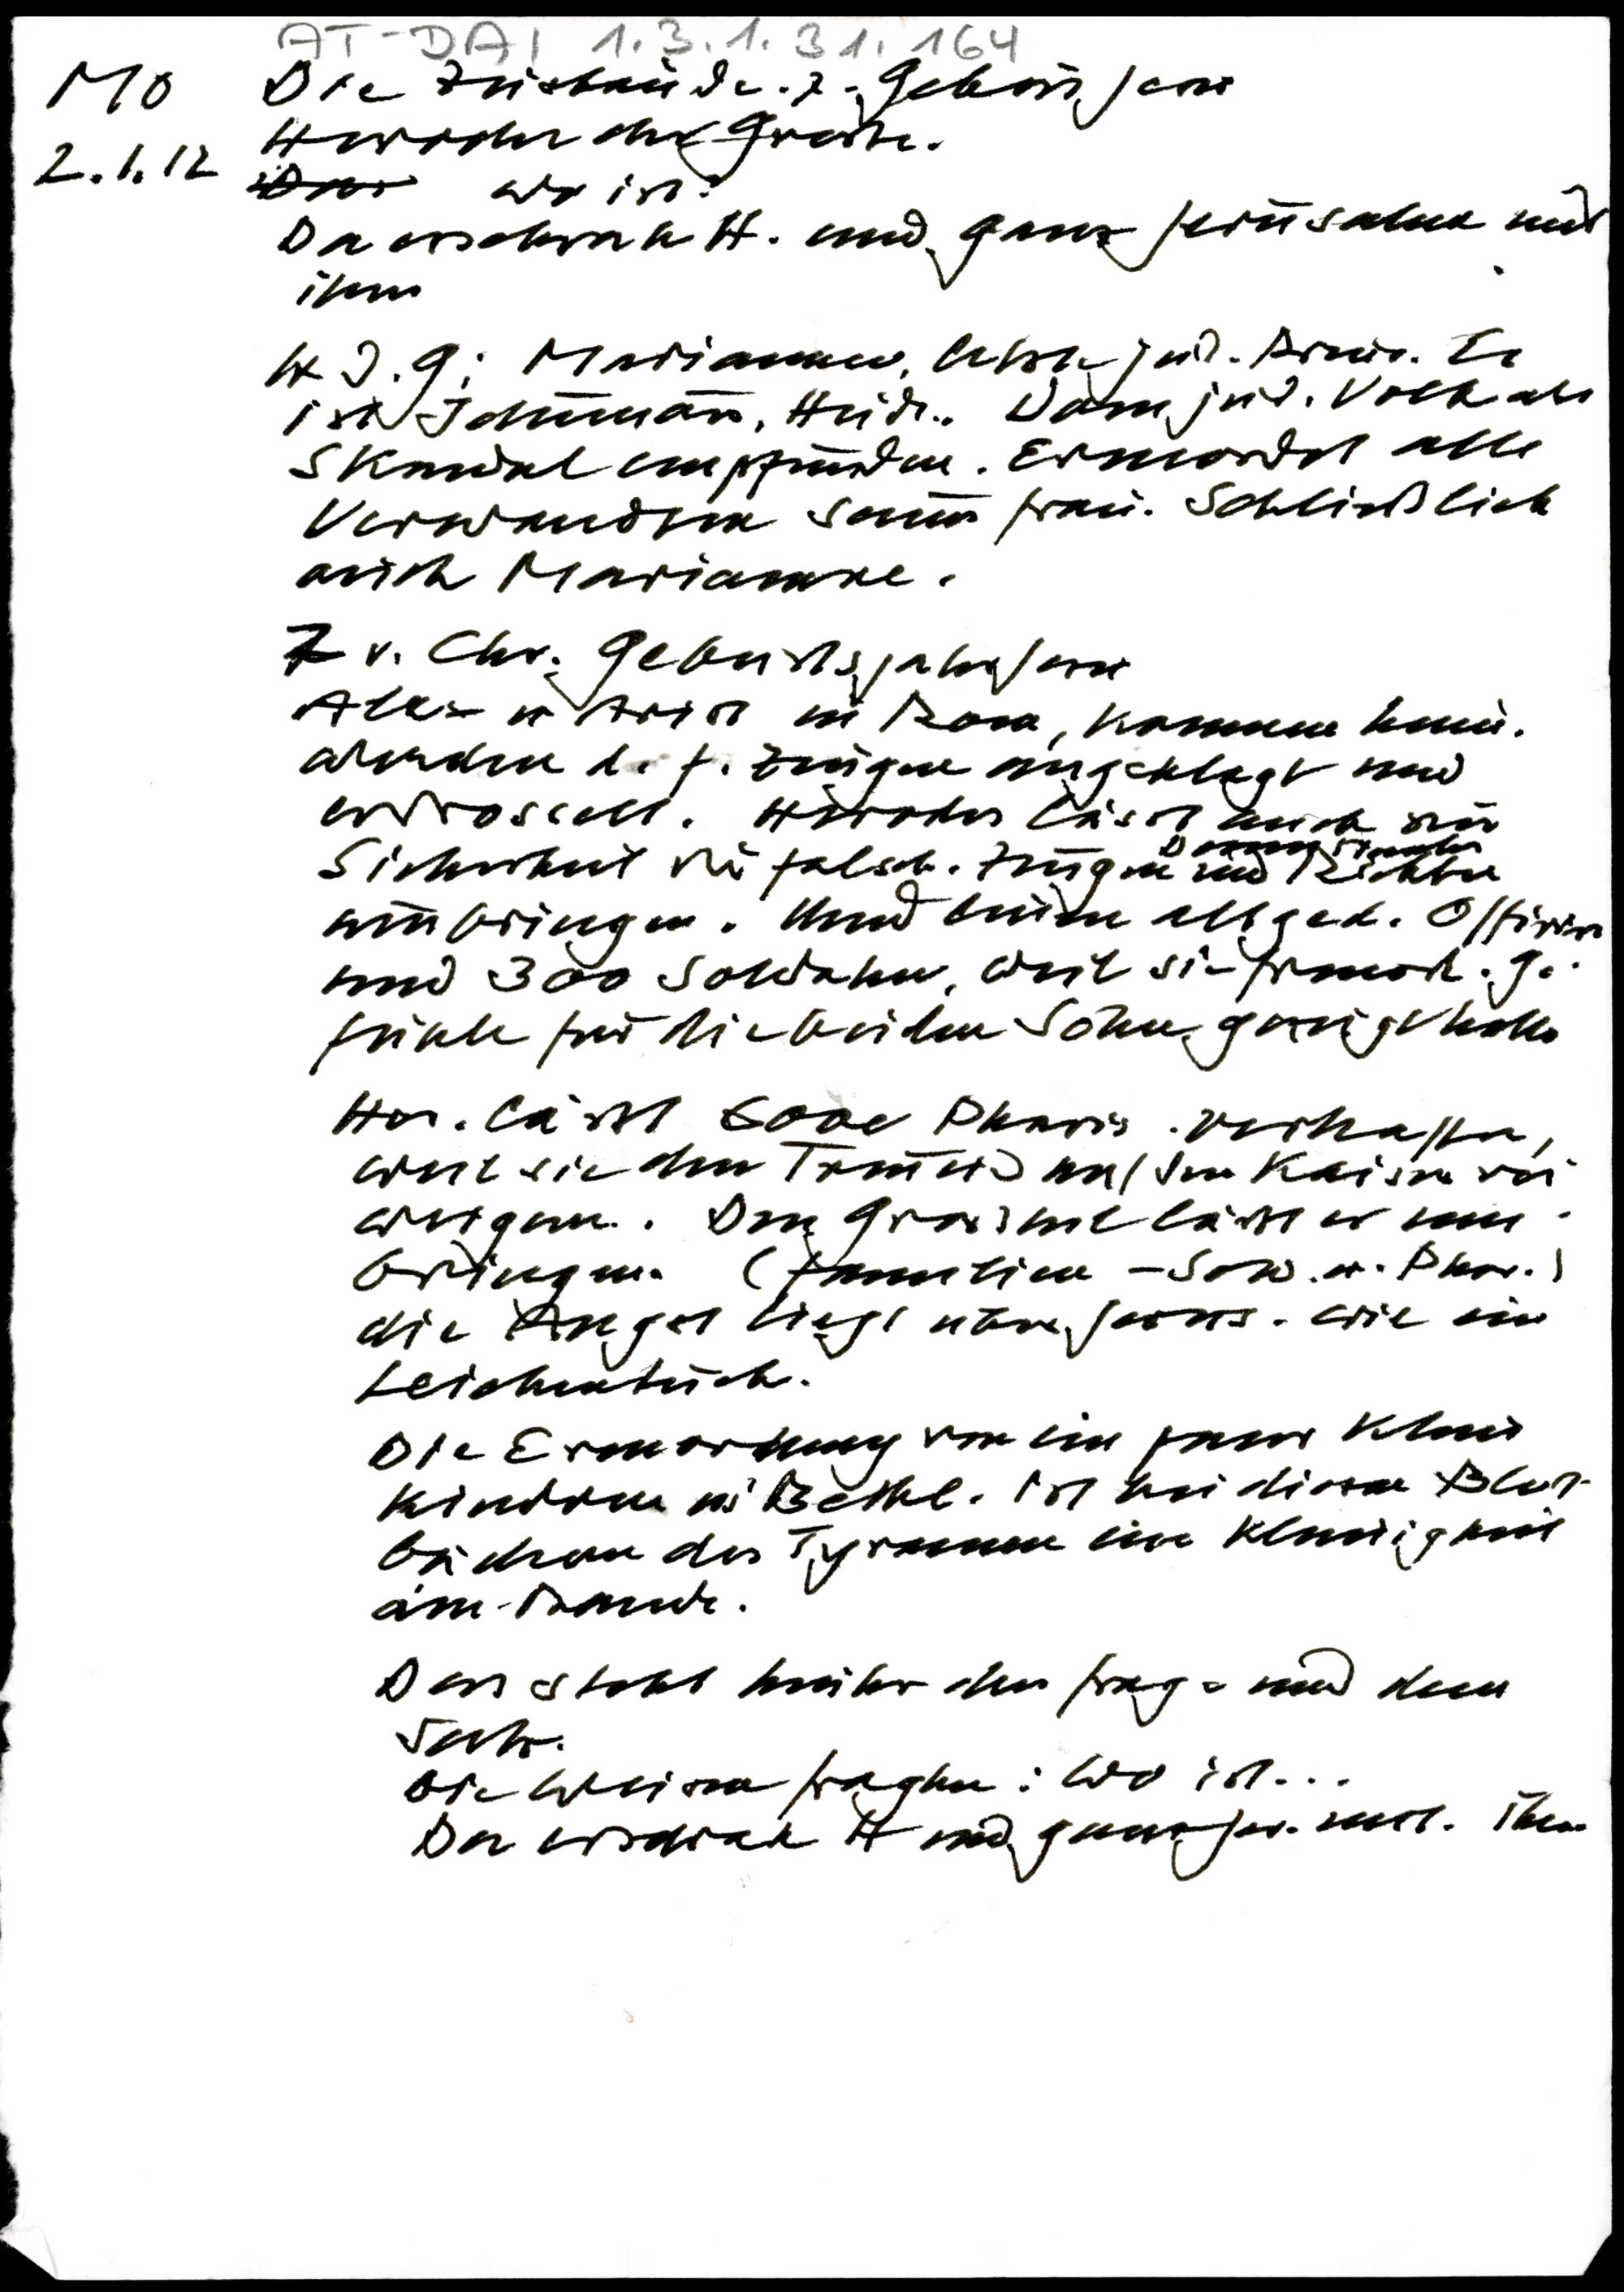 AT-DAI 1.3.1.31.164
MO Die Zustände z. Geburt Jesu
2.1.12 Herodes der Große.
Das wo ist:
Da erschrak H. und ganz Jerusalem mit
ihm
H. d. G: Mariamne, letzte jüd. Prinz. Er
ist Idumäer, Heide. Vom jüd. Volk als
Skandal empfunden. Ermordet alle
Verwandten seiner Frau. Schließlich
auch Mariamne.
7 v. Chr. Geburtsjahr Jesu
Alex u Arist in Rom, kommen heim.
werden d. f. Zeugen angeklagt und
erdrosselt. Herodes lässt auch zur
Sicherheit die falsch. Zeugen und Richter
umbringen. Und einen altged. Offizier
und 300 Soldaten, weil sie menschl. Ge-
fühle für die beiden Söhne gezeigt hatte
Her. lässt 6000 Pharis. verhaften,
weil sie den Treueid auf den Kaiser ver
weigern. Den Grossteil lässt er um-
bringen. (Familien - Sold. u. Phar.)
die Angst liegt über Jerus. wie ein
Leichentuch.
Die Ermordung von ein paar Klein
kindern in Bethl. ist bei diesen Blut-
bächen des Tyrannen eine Kleinigkeit
am Rande.
Das steht hinter der Frage und dem
Satz.
Die Weisen fragten: Wo ist...
Da erschrak H und ganz Jer. mit. ihm